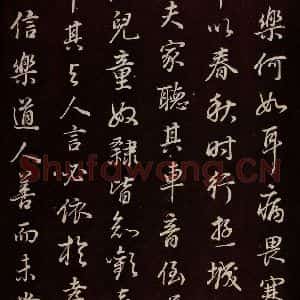 樂何如耳病畏寒
以春秋时行遊城
夫家聽其車音倒
兒童奴隸皆知歡
其与人言必依於孝
信樂道人善而未
Shufawang.CN